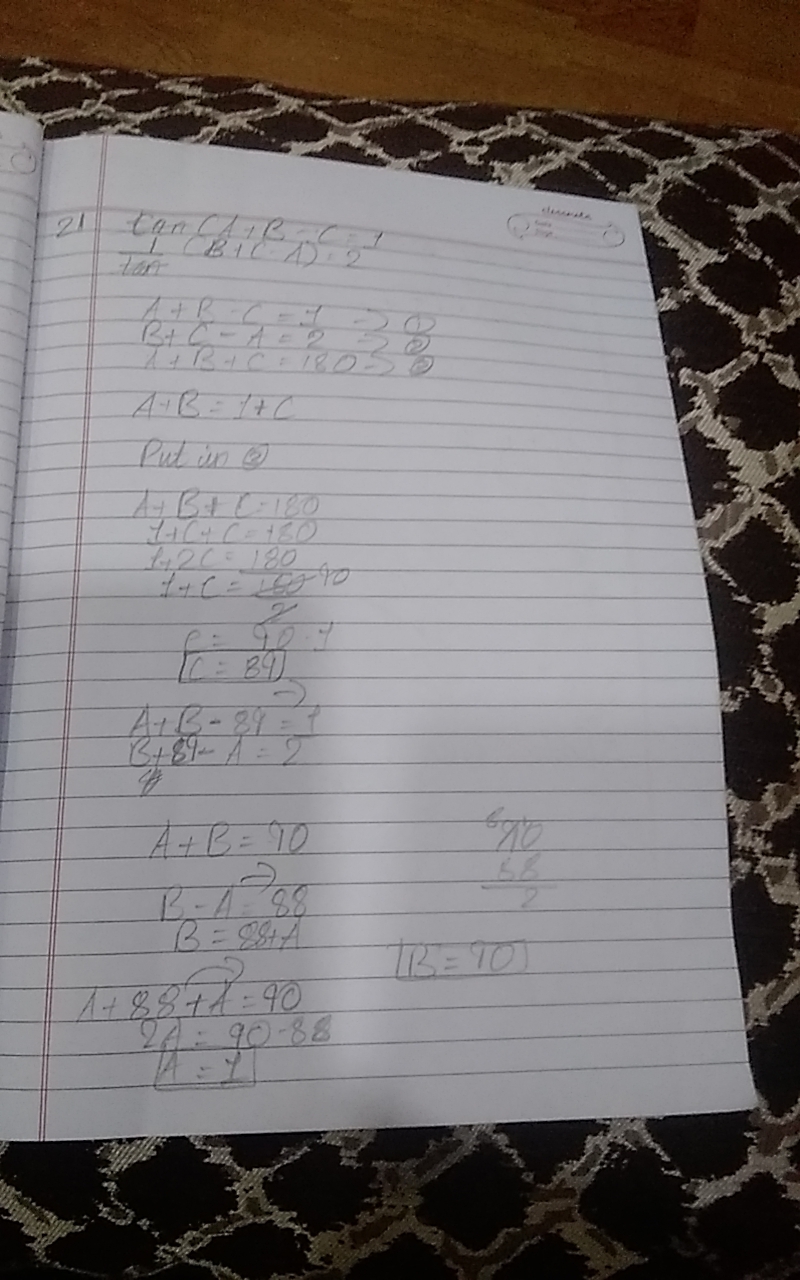 21 tan (A+B-C=1
1/tan (B+C-A)=2
A+B-C=1 → ①
B+C-A=2 → ②
A+B+C=180 → ③
A+B=1+C
Put in ③
A+B+C=180
1+C+C=180
1+2C=180
1+C=180 90
2
C= 90-1
C=89
A+B-89=1
B+89-A=2
A+B=90
B-A=88
B=88+A
A+88+A=90
2A=90-88
A=1
88
2
B=90